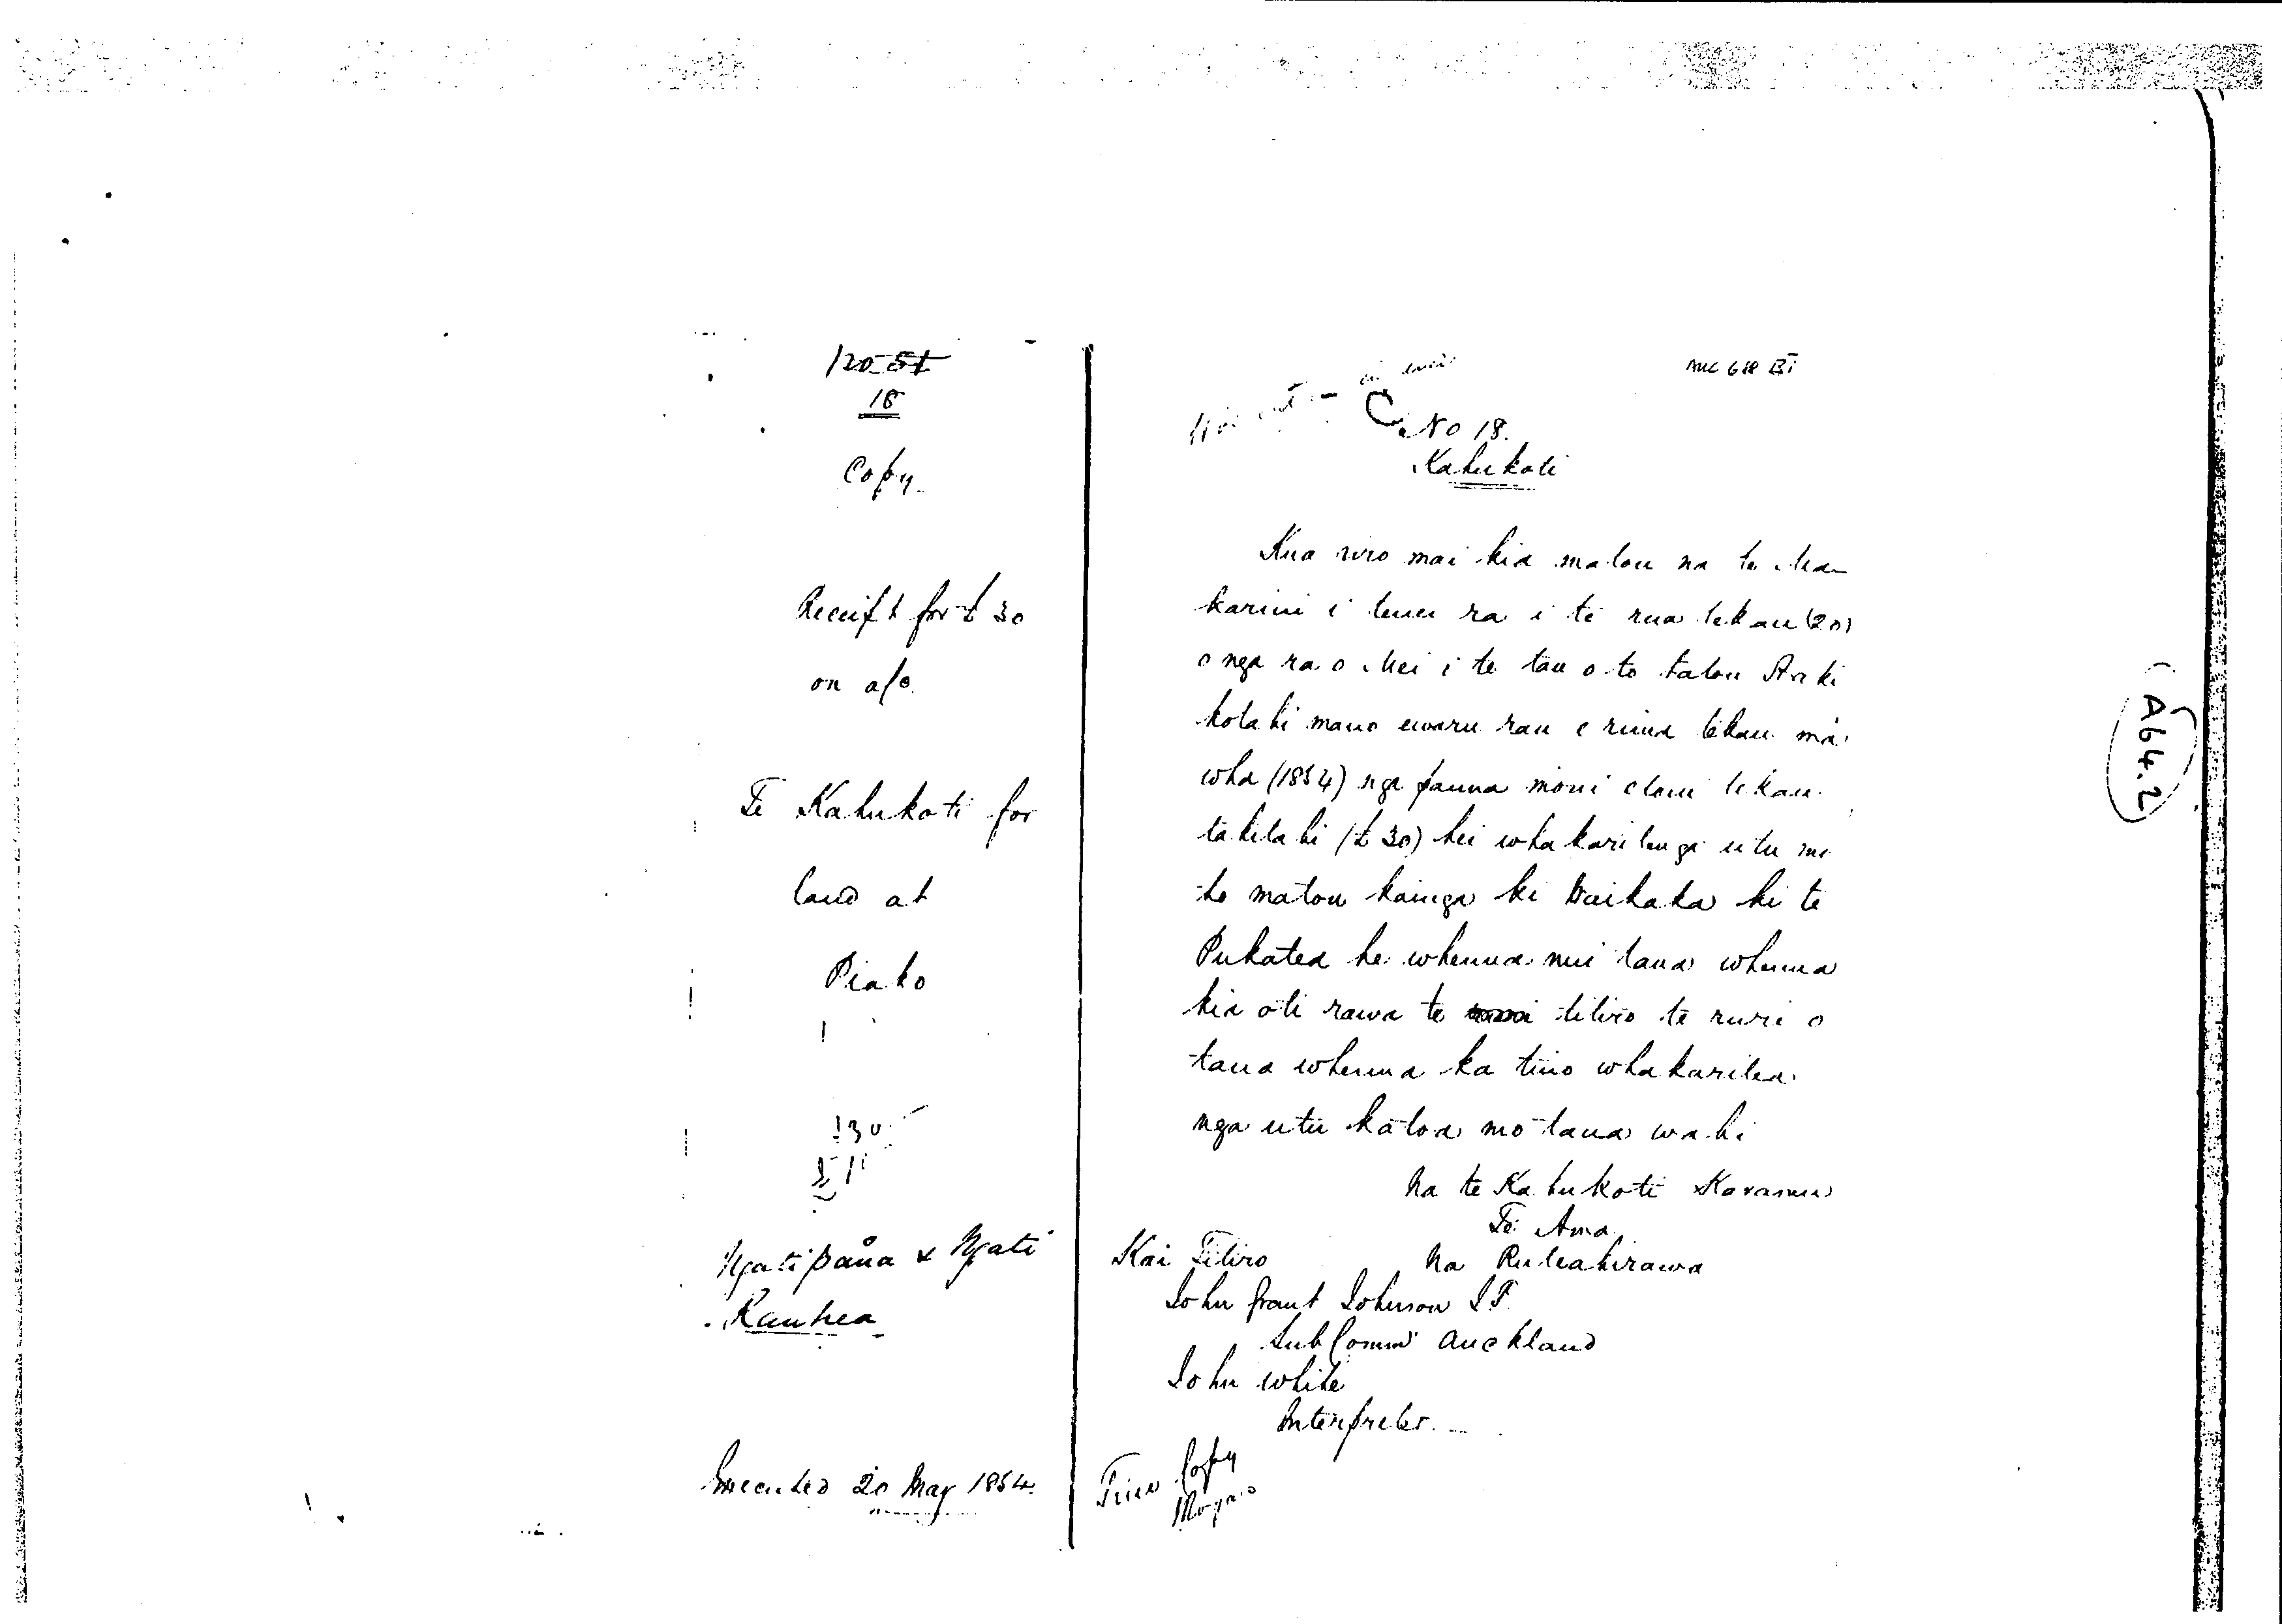 120 51
18
Copy.
Receipt for £30
on a/c.
Te Kahukoti for
land at
Piako
Ngatipaua & Ngati
Rauhea
Executed 20 May 1854.
MLC 618 BI
No 18.
Kahukoti
Kua riro mai kia matou na te Ma-
karini i tenei ra i te rua tekau (20)
o nga ra o Mei i te tau o to tatou Ariki
kotahi mano ewaru rau e rima tekau ma
wha (1854) nga pauna moni e toru tekau
takitahi (£30) hei whakaritenga utu mo
to matou kainga ki Waikaka ki te
Pukatea he whenua nui taua whenua
kia oti rawa te titiro te ruri o
taua whenua ka tino whakaritea
nga utu katoa mo taua wahi
Na te Kahukoti Karamu
Te Ama
Kai Titiro Na Ruteahirawa
John Grant Johnson I.P.
Sub Commr Auckland
John White
Interpreter.
True Copy
A64.2